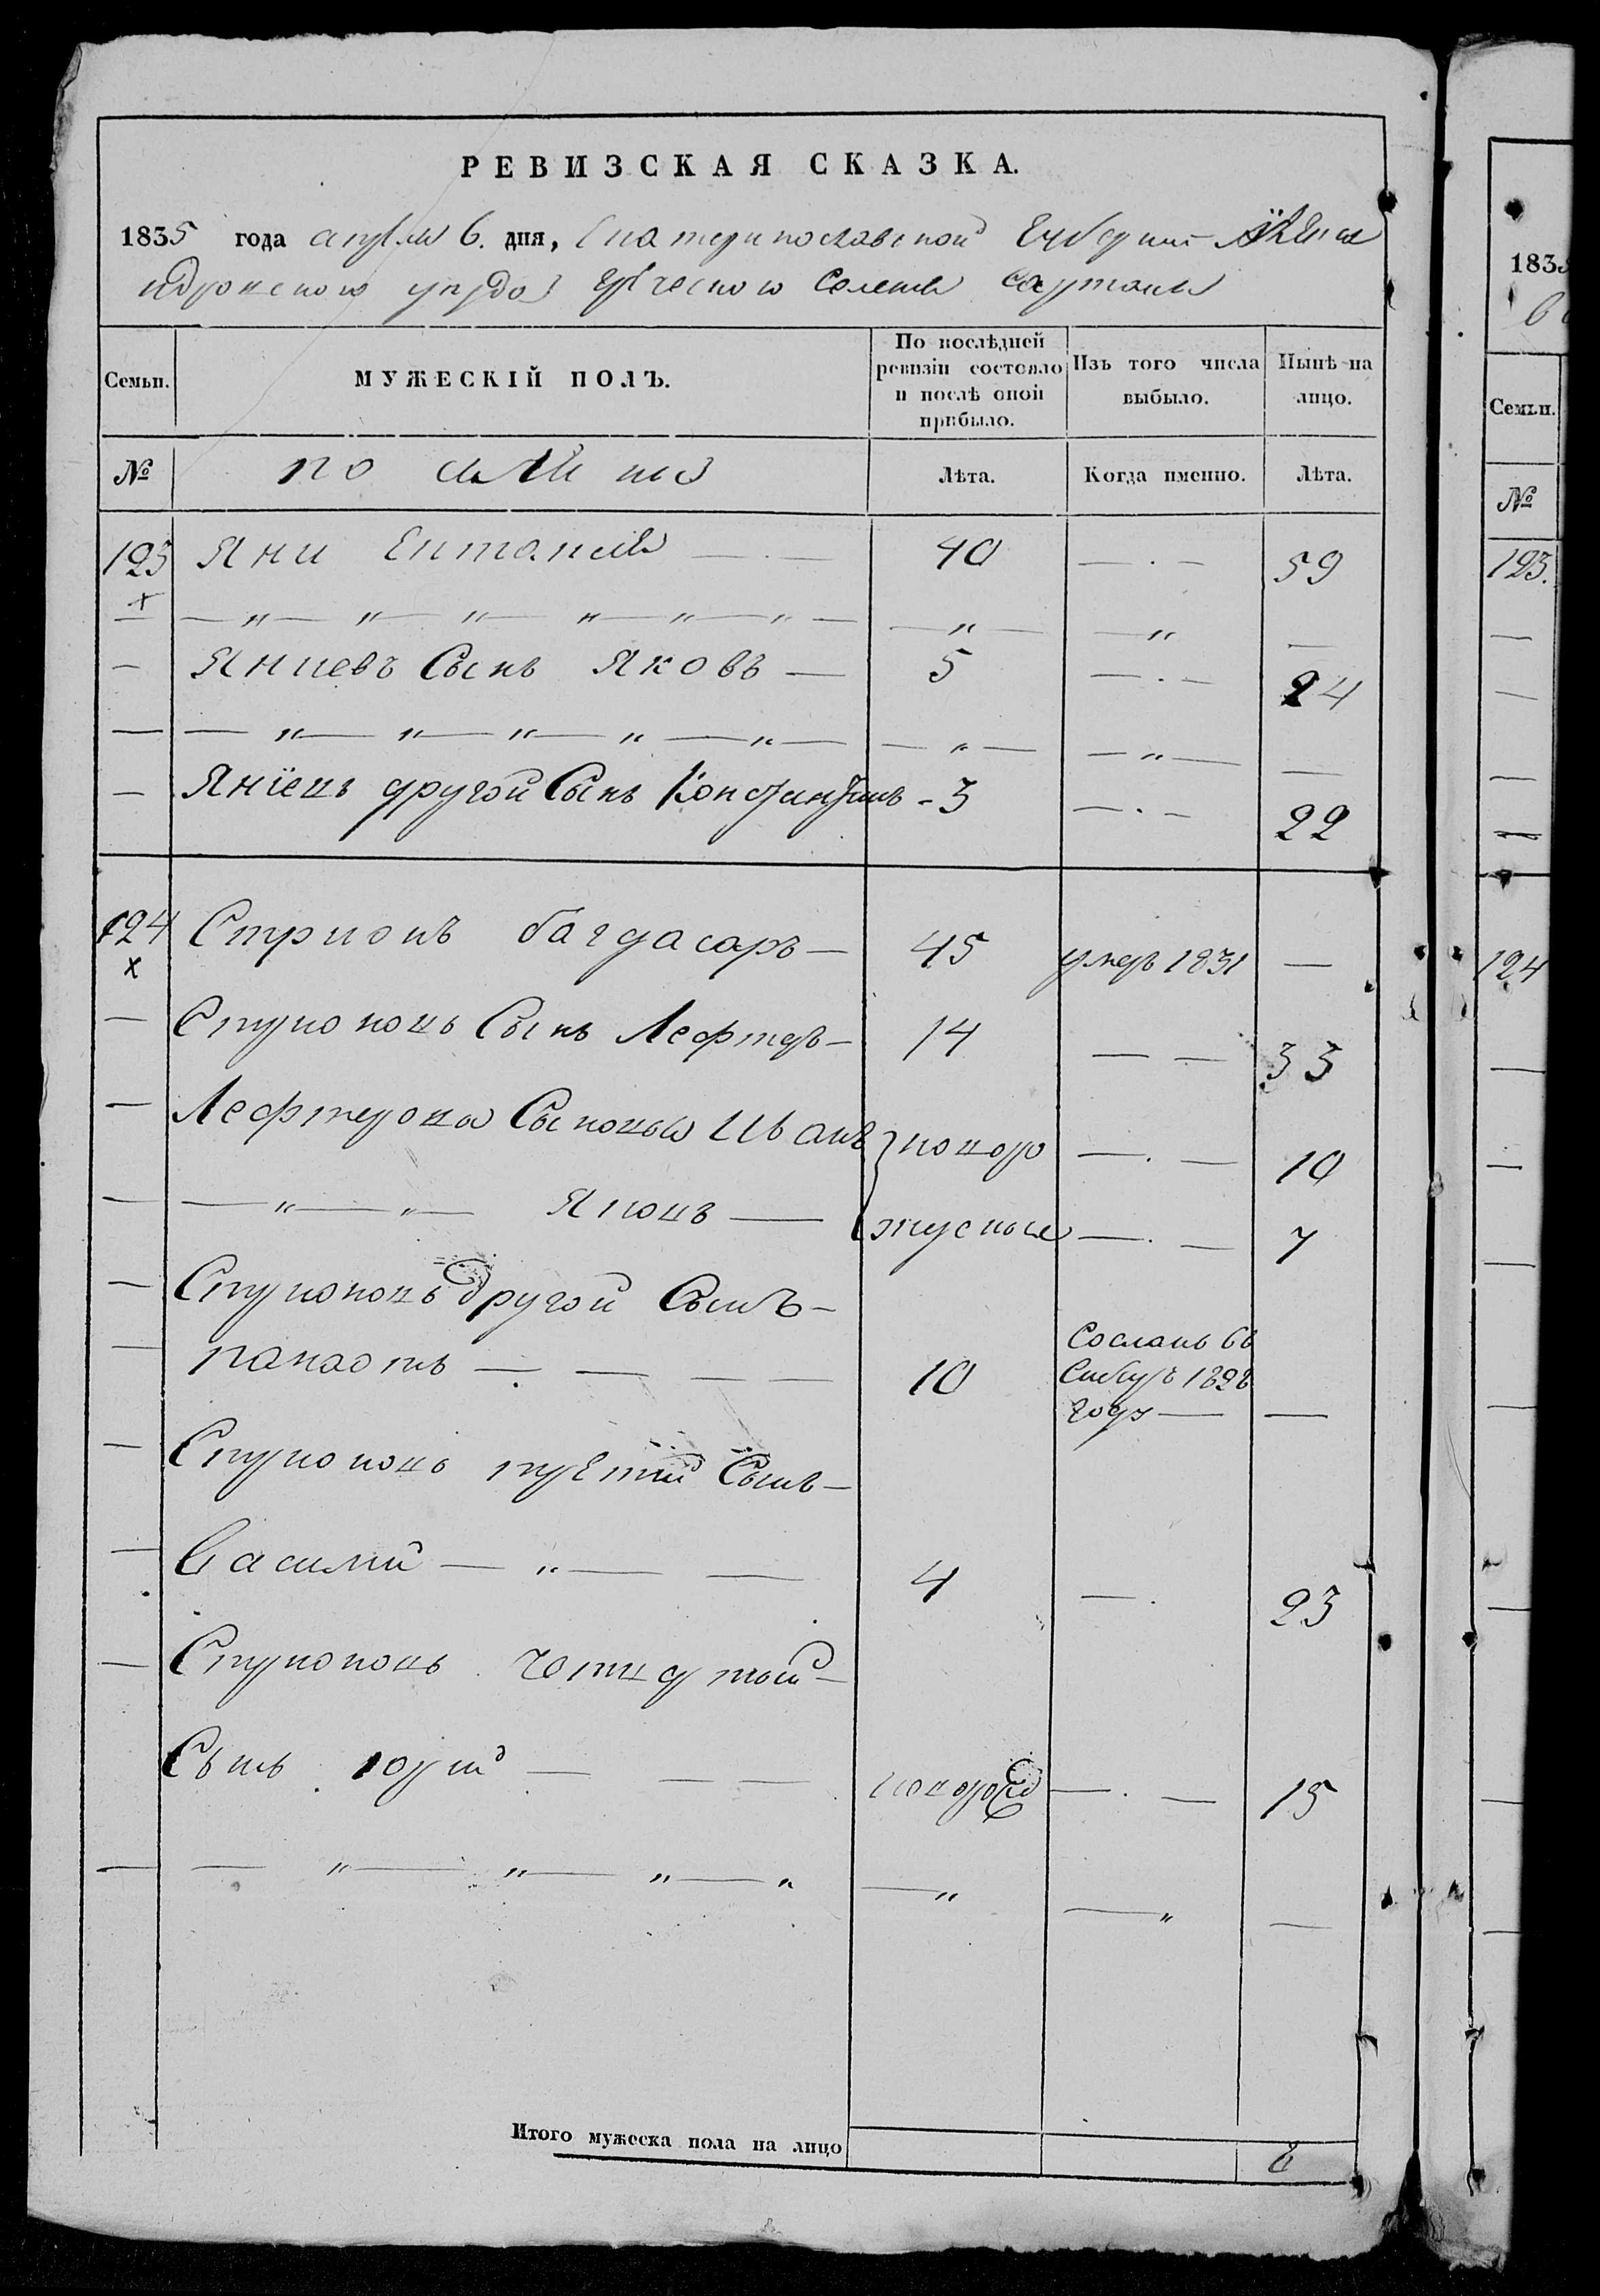 РЕВИЗСКАЯ СКАЗКА.
1835 года апреля 6. дня, Екатеринославской Губернии Алекса
ндровского уезда Греческого Селения Сартаны
Семьи. МУЖЕСКІЙ ПОЛЪ. По послѣдней ревизіи состояло и послѣ оной прибыло. Изъ того числа выбыло. Нынѣ на лицо.
№ Лѣта. Когда именно. Лѣта.
123 Яни 40 — . — 59
— Яниевъ Сынъ Яковъ — 5 — . — 24
— Яніевъ другой Сынъ Константинъ - 3 — . — 22
124 Стрионъ багдасаръ — 45 умеръ 1831 —
— Стрионовъ Сынъ Лефтеръ — 14 — — 33
— Лефтерова Сыновья Иванъ } новоро — . — 10
— — " — " — Яковъ — жденные — . — 7
— Стрионовъ другой Сынъ —
— панаотъ — — — — 10 Сосланъ въ Сибирь 1828 году — —
— Стрионовъ третій Сынъ —
— Василій — " — — 4 — . 23
— Стрионовъ четвертый —
Сынъ юрій — — — новорож — . — 15
Итого мужеска пола на лицо 8
1835
Семьи.
№
123.
124